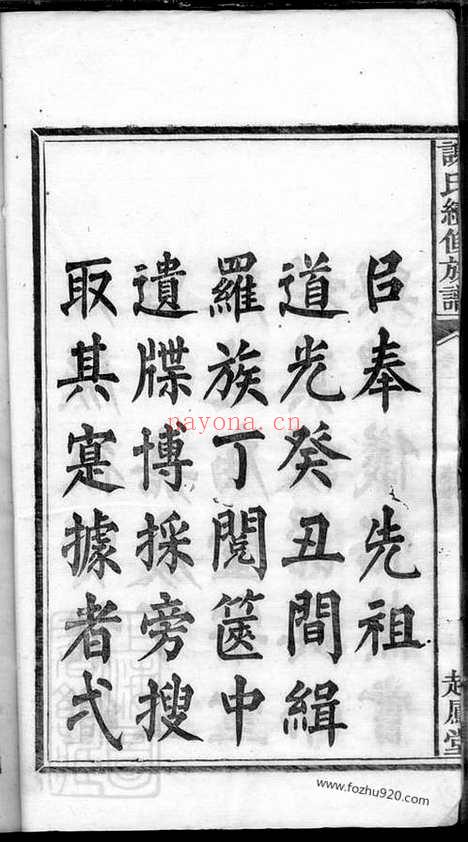 謝氏續修族譜
起鳳堂
㠯奉 先祖
道光癸丑間緝
羅族丁閱篋中
遺牒博採旁搜
取其寔據者弍
nayona.cn
www.fozhu920.com